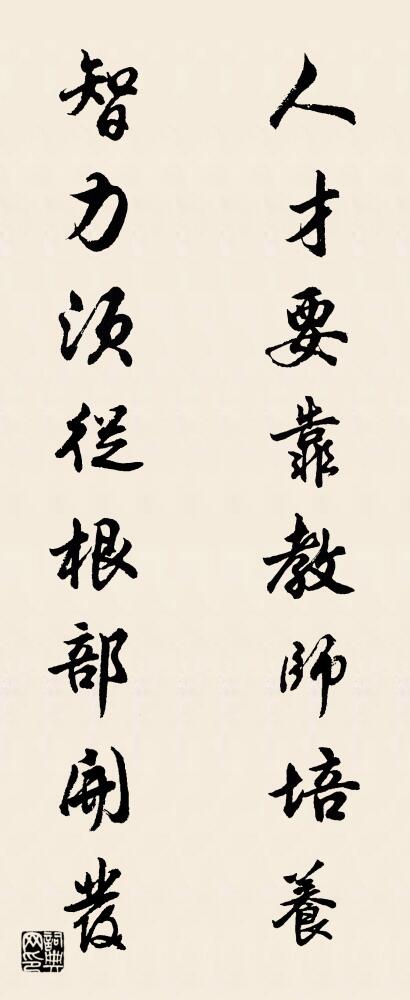 人才要靠教師培養
智力須從根部開發
詞典網印